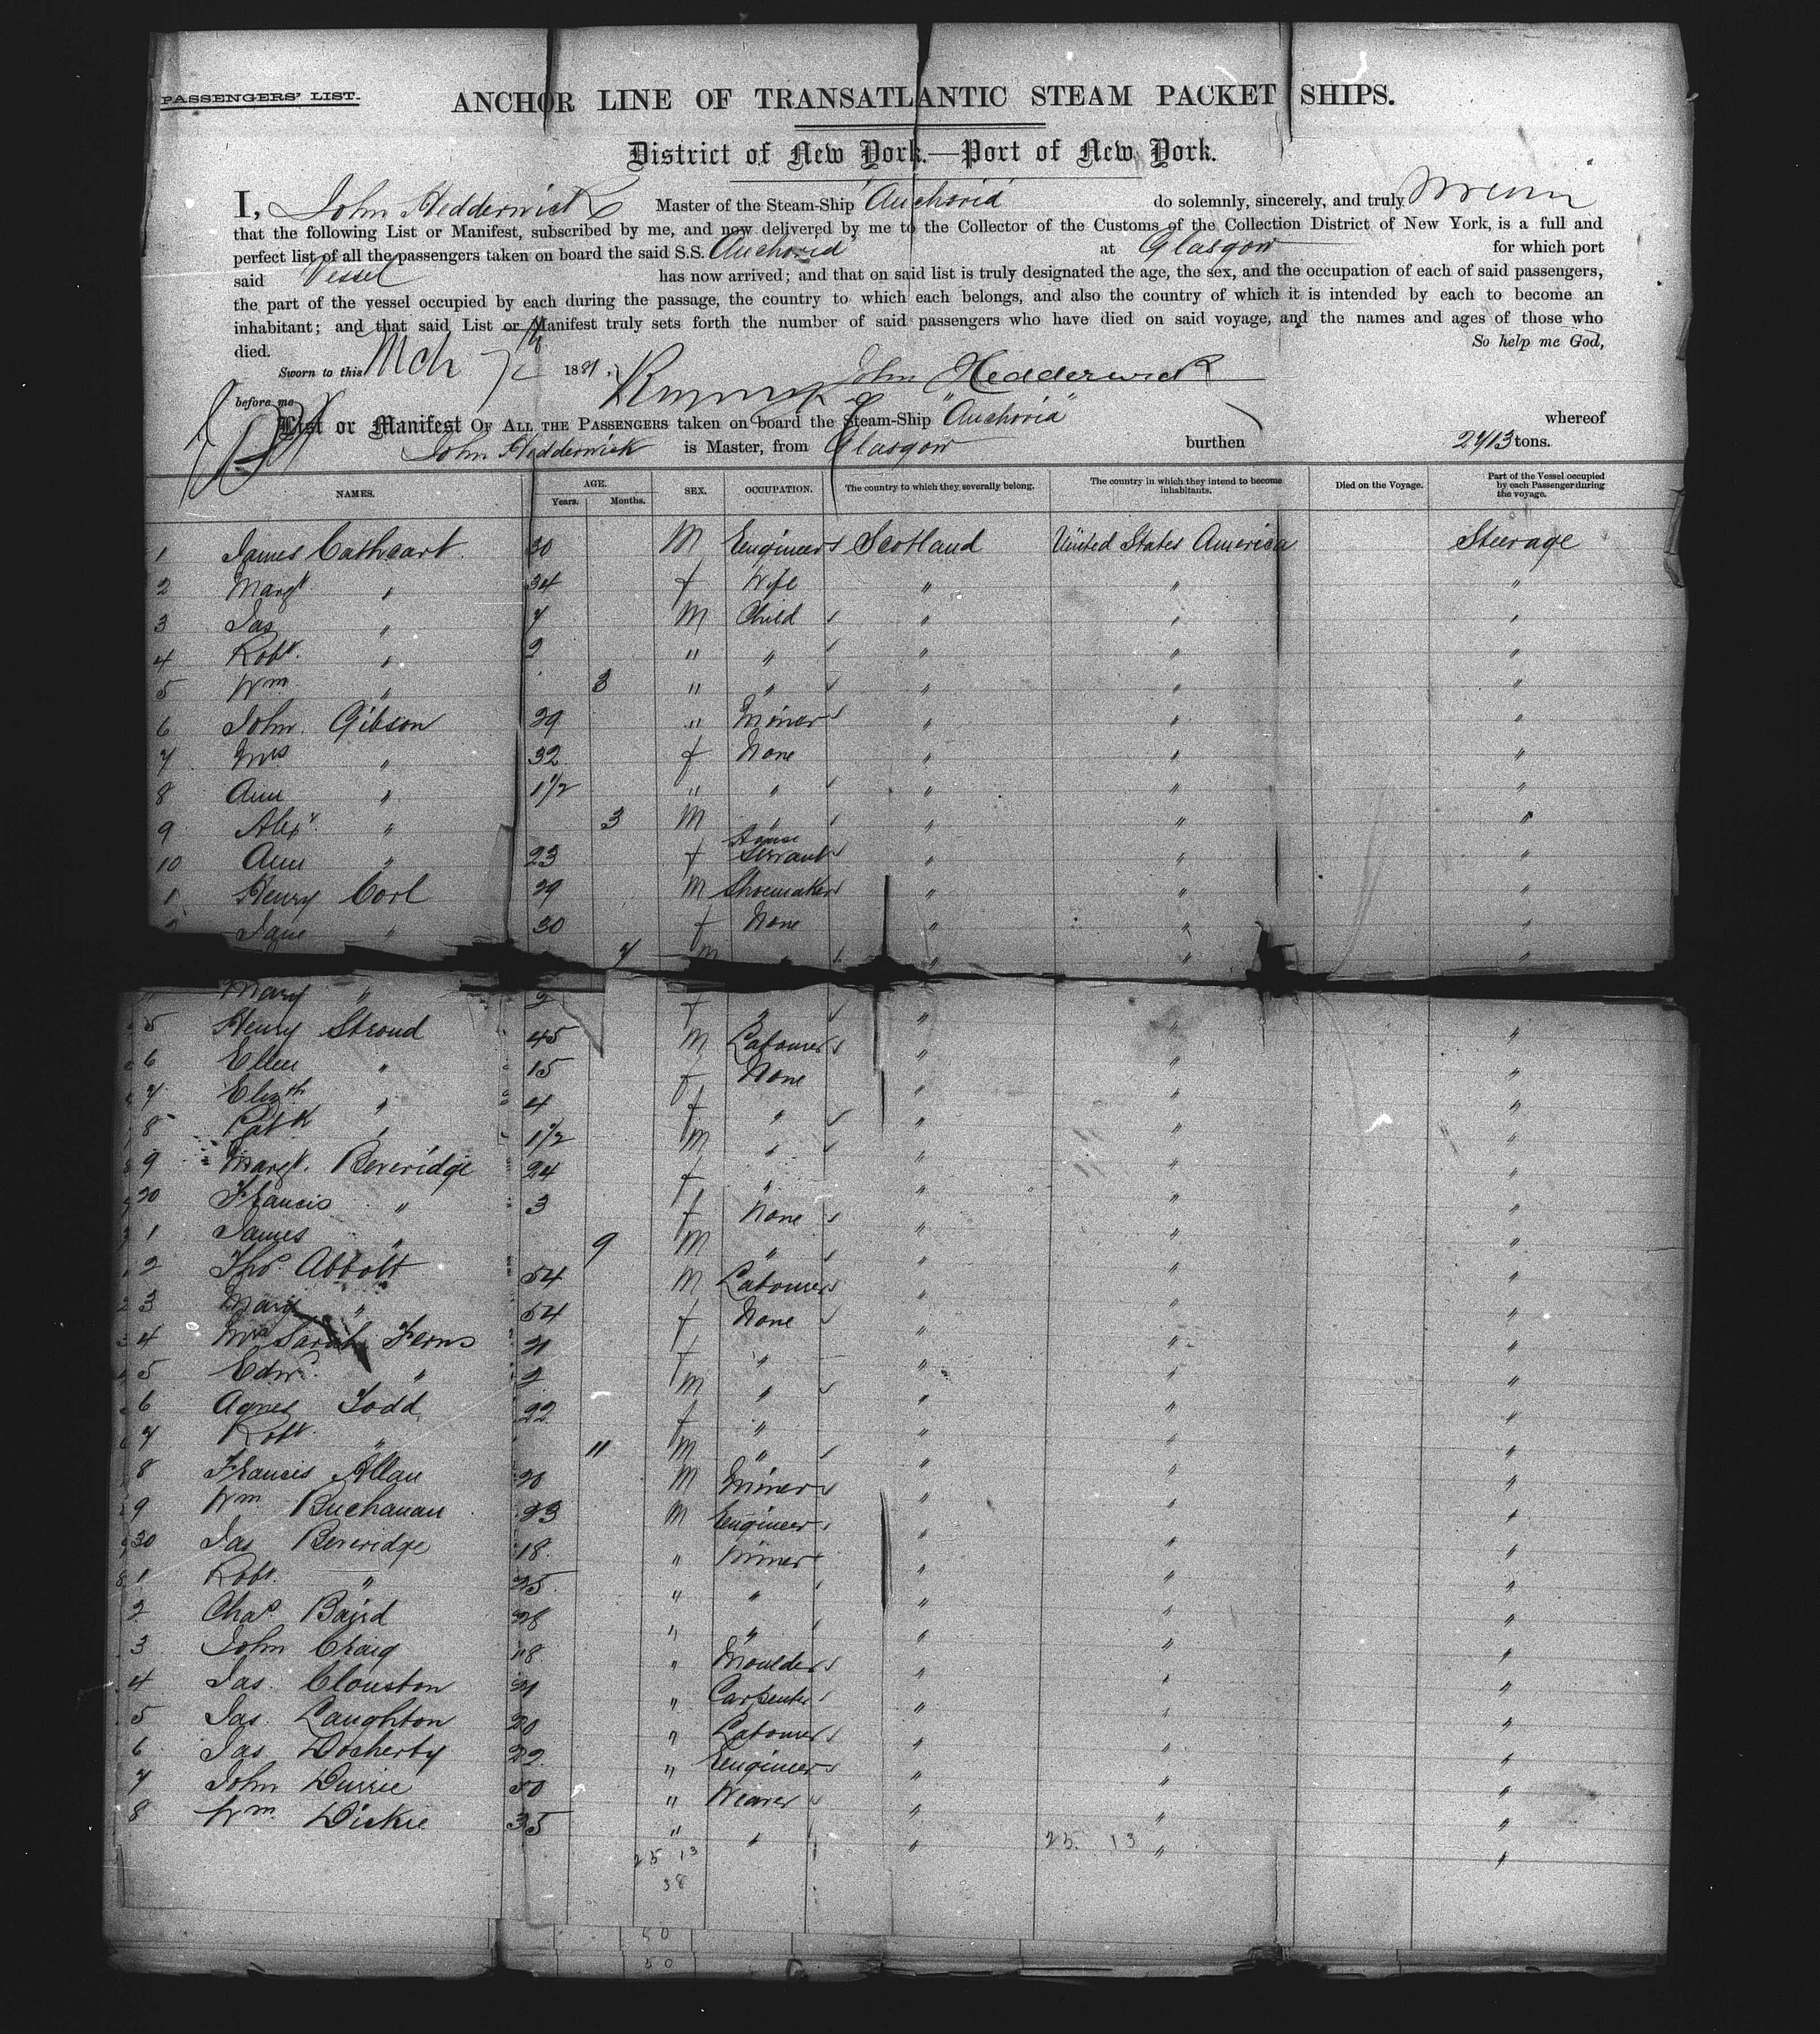 PASSENGERS' LIST.
ANCHOR LINE OF TRANSATLANTIC STEAM PACKET SHIPS.
District of New York.—Port of New York.
I, John Hedderwick Master of the Steam-Ship "Anchoria" do solemnly, sincerely, and truly swear
that the following List or Manifest, subscribed by me, and now delivered by me to the Collector of the Customs of the Collection District of New York, is a full and
perfect list of all the passengers taken on board the said S.S. "Anchoria" at Glasgow for which port
said Vessel has now arrived; and that on said list is truly designated the age, the sex, and the occupation of each of said passengers,
the part of the vessel occupied by each during the passage, the country to which each belongs, and also the country of which it is intended by each to become an
inhabitant; and that said List or Manifest truly sets forth the number of said passengers who have died on said voyage, and the names and ages of those who
died. So help me God,
Sworn to this Mch 7th 1881. John Hedderwick
before me
List or Manifest OF ALL THE PASSENGERS taken on board the Steam-Ship "Anchoria" whereof
John Hedderwick is Master, from Glasgow burthen 2713 tons.
NAMES. AGE. Years. Months. SEX. OCCUPATION. The country to which they severally belong. The country in which they intend to become inhabitants. Died on the Voyage. Part of the Vessel occupied by each Passenger during the voyage.
1 James Cathcart 30 M Engineer Scotland United States America Steerage
2 Margt " 34 f Wife " " "
3 Jas " 7 M Child " " "
4 Robt. " 2 " " " " "
5 Wm " 3 " " " " "
6 John Gibson 29 " Miner " " "
7 Mrs " 32 f None " " "
8 Ann " 1 1/2 " " " " "
9 Alexr " 3 M " " " "
10 Ann " 23 f House Servant " " "
1 Henry Corl 29 M Shoemaker " " "
2 Jane " 30 f None " " "
7 M " " " "
Mary " 2 f " " " "
5 Henry Stroud 45 M Labourer " " "
6 Ellen " 15 f None " " "
7 Elizth " 4 f " " " "
8 Patk " 1 1/2 M " " " "
9 Margt. Beveridge 24 f " " " "
20 Francis " 3 f None " " "
1 James " 9 M " " " "
2 Thos Abbott 54 M Labourer " " "
3 Mary " 54 f None " " "
4 Mrs Sarah Ferns 21 f " " " "
5 Edwd. " 2 M " " " "
6 Agnes Todd 22 f " " " "
7 Robt. " 11 M " " " "
8 Francis Allan 20 M Miner " " "
9 Wm Buchanan 23 M Engineer " " "
30 Jas Beveridge 18 " Miner " " "
1 Robt. " 25 " " " " "
2 Chas Baird 28 " " " " "
3 John Craig 18 " Moulder " " "
4 Jas. Clouston 21 " Carpenter " " "
5 Jas. Laughton 20 " Labourer " " "
6 Jas Docherty 22 " Engineer " " "
7 John Durrie 50 " Weaver " " "
8 Wm. Dickie 35 " " " " "
25 13 25 13
38